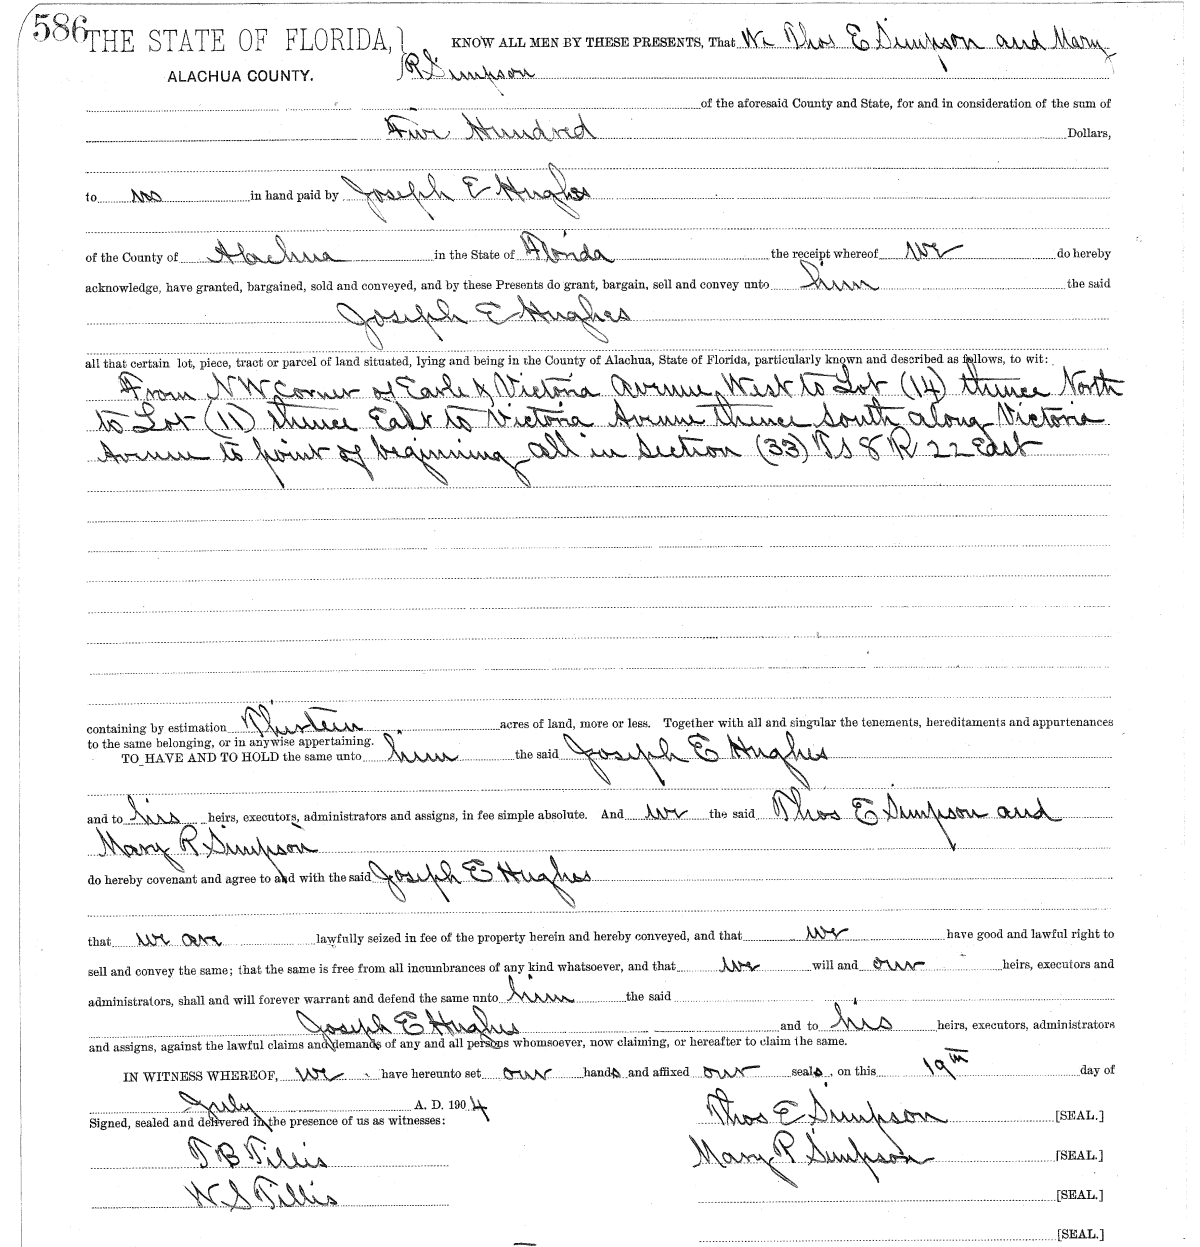 586
THE STATE OF FLORIDA,} KNOW ALL MEN BY THESE PRESENTS, That We Thos E Simpson and Mary
ALACHUA COUNTY. R Simpson
of the aforesaid County and State, for and in consideration of the sum of
Five Hundred Dollars,
to us in hand paid by Joseph E Hughes
of the County of Alachua in the State of Florida the receipt whereof we do hereby
acknowledge, have granted, bargained, sold and conveyed, and by these Presents do grant, bargain, sell and convey unto him the said
Joseph E Hughes
all that certain lot, piece, tract or parcel of land situated, lying and being in the County of Alachua, State of Florida, particularly known and described as follows, to wit:
From N W Corner of Earle & Victoria Avenue West to Lot (14) thence North
to Lot (11) thence East to Victoria Avenue thence south along Victoria
Avenue to point of beginning all in Section (33) T S 8 R 22 East
containing by estimation Thirteen acres of land, more or less. Together with all and singular the tenements, hereditaments and appurtenances
to the same belonging, or in anywise appertaining.
TO HAVE AND TO HOLD the same unto him the said Joseph E Hughes
and to his heirs, executors, administrators and assigns, in fee simple absolute. And we the said Thos E Simpson and
Mary R Simpson
do hereby covenant and agree to and with the said Joseph E Hughes
that we are lawfully seized in fee of the property herein and hereby conveyed, and that we have good and lawful right to
sell and convey the same; that the same is free from all incumbrances of any kind whatsoever, and that we will and our heirs, executors and
administrators, shall and will forever warrant and defend the same unto him the said
Joseph E Hughes and to his heirs, executors, administrators
and assigns, against the lawful claims and demands of any and all persons whomsoever, now claiming, or hereafter to claim the same.
IN WITNESS WHEREOF, we have hereunto set our hands and affixed our seals, on this 19th day of
July A. D. 1904
Signed, sealed and delivered in the presence of us as witnesses:
Thos E Simpson [SEAL.]
T B Tillis Mary R Simpson [SEAL.]
W S Tillis [SEAL.]
[SEAL.]